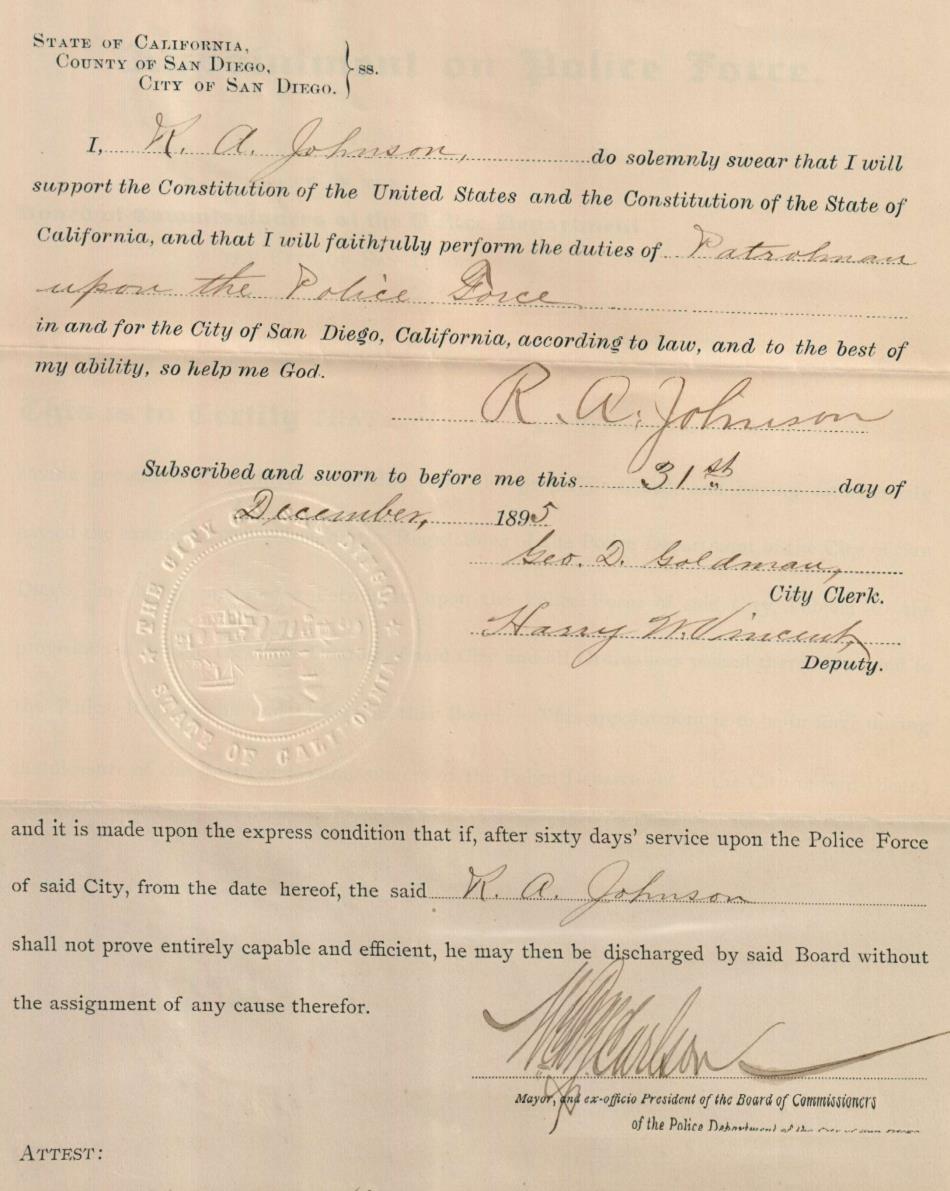 STATE OF CALIFORNIA,
COUNTY OF SAN DIEGO, ss.
CITY OF SAN DIEGO.
I, R. A. Johnson, do solemnly swear that I will
support the Constitution of the United States and the Constitution of the State of
California, and that I will faithfully perform the duties of Patrolman
upon the Police Force
in and for the City of San Diego, California, according to law, and to the best of
my ability, so help me God.
R. A. Johnson
Subscribed and sworn to before me this 31st day of
December, 1895
Geo. D. Goldman,
City Clerk.
Harry W. Vincent,
Deputy.
THE CITY OF SAN DIEGO.
STATE OF CALIFORNIA.
and it is made upon the express condition that if, after sixty days' service upon the Police Force
of said City, from the date hereof, the said R. A. Johnson
shall not prove entirely capable and efficient, he may then be discharged by said Board without
the assignment of any cause therefor.
Carlson
Mayor, and ex-officio President of the Board of Commissioners
of the Police Department of the
ATTEST: